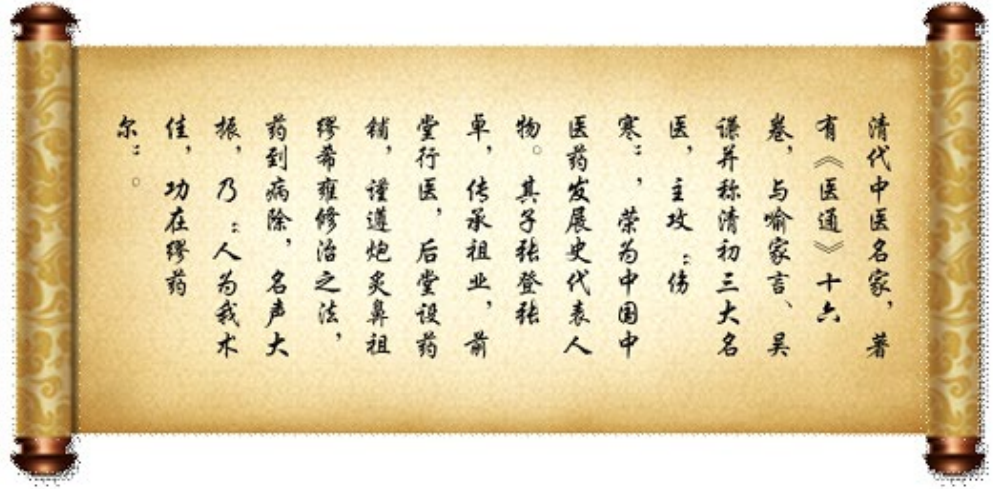 清代中医名家，著
有《医通》十六
卷，与喻家言、吴
谦并称清初三大名
医，主攻“伤
寒”，荣为中国中
医药发展史代表人
物。其子张登张
卓，传承祖业，前
堂行医，后堂设药
铺，谨遵炮炙鼻祖
缪希雍修治之法，
药到病除，名声大
振，乃“人为我术
佳，功在缪药
尔”。